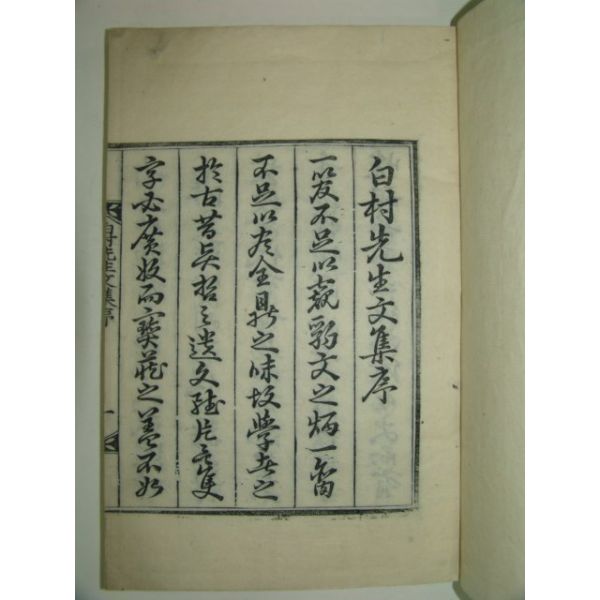 白村先生文集序
一斑不足以窺豹文之炳一臠
不足以存全鼎之味故學者之
於古昔名哲之遺文雖片言隻
字必廣收而寶藏之蓋不如
白村先生文集序
一